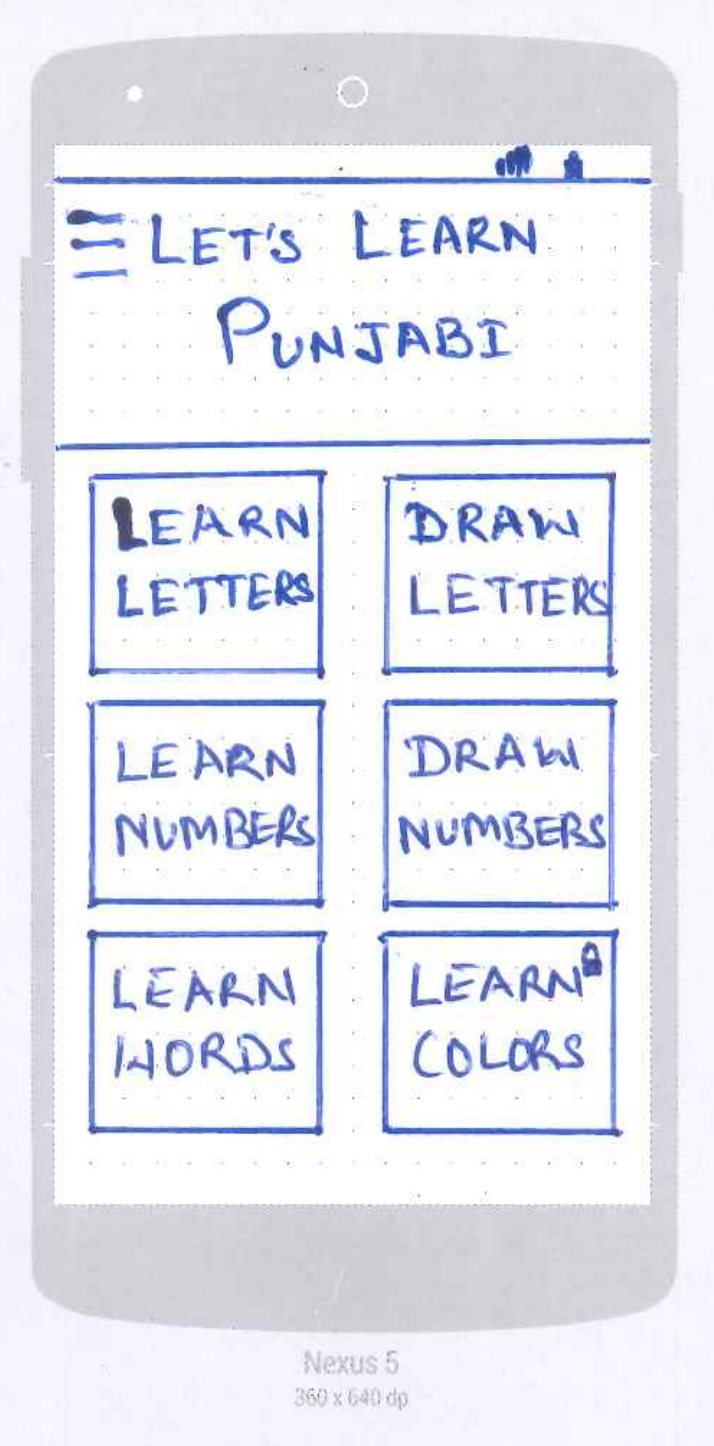 LET'S LEARN
PUNJABI
LEARN
LETTERS
DRAW
LETTERS
LEARN
NUMBERS
DRAW
NUMBERS
LEARN
WORDS
LEARN
COLORS
Nexus 5
360 x 640 dp